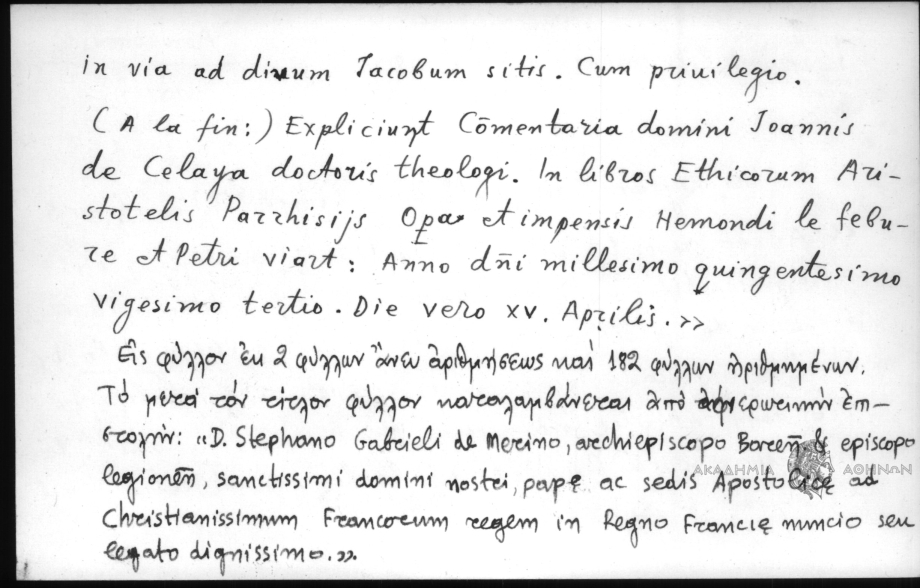 in via ad divum Iacobum sitis. Cum priuilegio.
(A la fin:) Expliciunt Cōmentaria domini Joannis
de Celaya doctoris theologi. In libros Ethicorum Ari-
stotelis Parrhisijs Opa et impensis Hemondi le febu-
re et Petri viart: Anno dn̄i millesimo quingentesimo
vigesimo tertio. Die vero xv. Aprilis.»
Εἰς φύλλον ἐκ 2 φύλλων ἄνευ ἀριθμήσεως καὶ 182 φύλλων ἠριθμημένων.
Τὸ μετὰ τὸν τίτλον φύλλον καταλαμβάνεται ἀπὸ ἀφιερωτικὴν ἐπι-
στολήν: «D. Stephano Gabrieli de Merino, archiepiscopo Bareñ & episcopo
legioneñ, sanctissimi domini nostri, papę ac sedis Apostolicę ad
Christianissimum Francorum regem in Regno Francię nuncio seu
legato dignissimo.»
ΑΚΑΔΗΜΙΑ ΑΘΗΝΩΝ